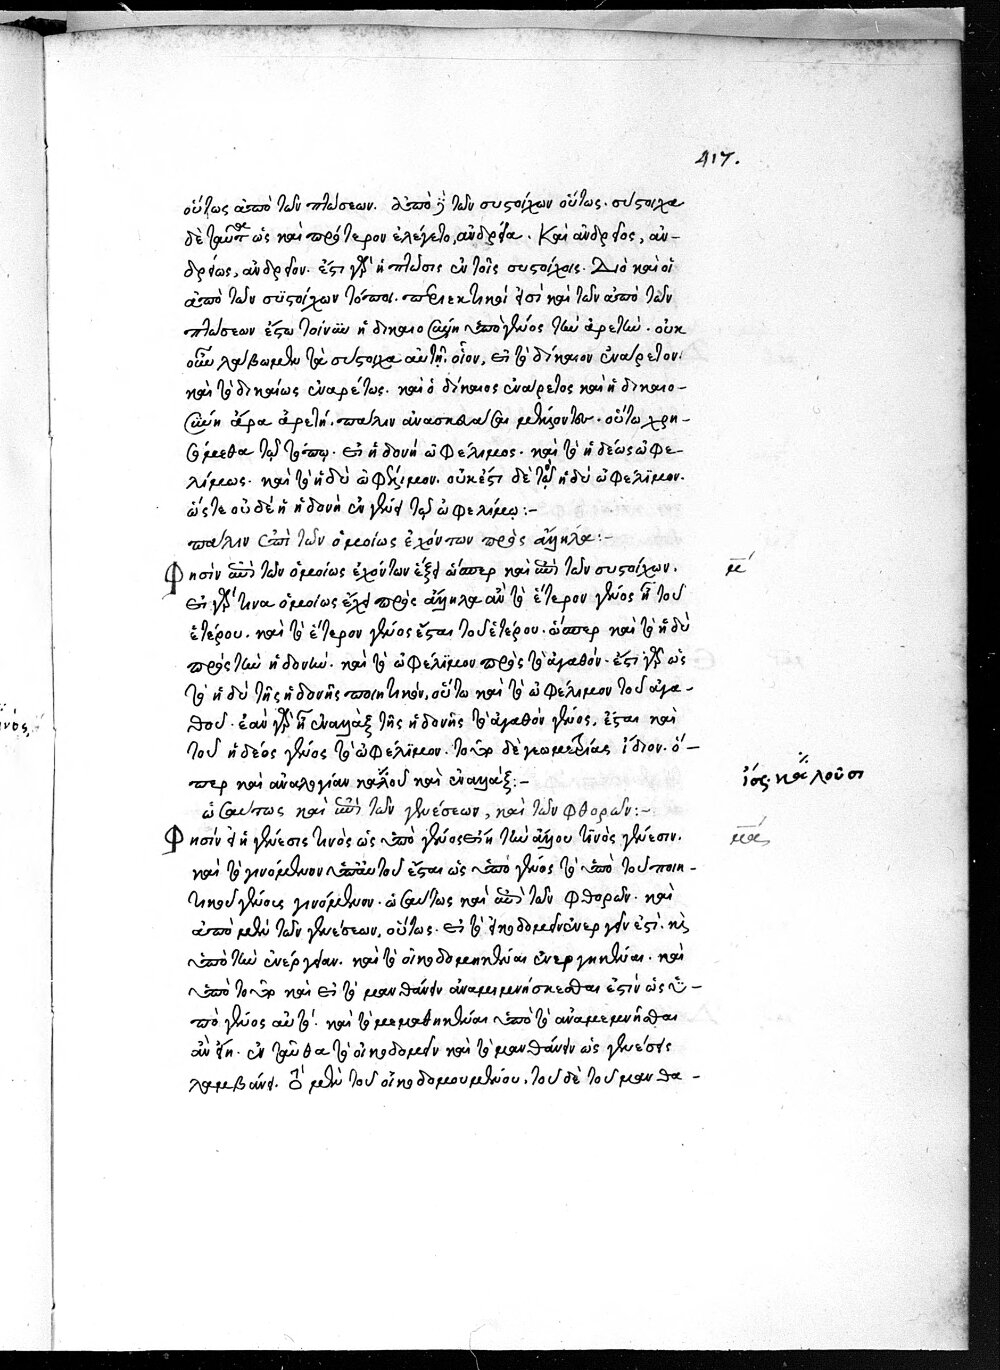 417.
οὕτως ἀπὸ τῶν πτώσεων. ἀπὸ δὲ τῶν συστοίχων οὕτως. σύστοιχα
δὲ ταῦτα ὡς καὶ πρότερον ἐλέγετο, ἀνδρεία. Καὶ ἀνδρεῖος, ἀν-
δρείως, ἀνδρεῖον. ἔστι γὰρ ἡ πτῶσις ἐν τοῖς συστοίχοις. Διὸ καὶ οἱ
ἀπὸ τῶν συστοίχων τόποι. περιεκτικοί εἰσὶ καὶ τῶν ἀπὸ τῶν
πτώσεων ἔστω τοίνυν ἡ δικαιοσύνη ὑπὸ γένος τὴν ἀρετὴν. οὐκ
οὖν λαβωμεν τὰ σύστοιχα αὐτῆ. οἷον, εἰ τὸ δίκαιον ἐνάρετον.
καὶ τὸ δικαίως ἐναρέτως. καὶ ὁ δίκαιος ἐνάρετος καὶ ἡ δικαιο-
σύνη ἄρα ἀρετή. πάλιν ἀνασκευάσαι μὲν οὕτω χρη-
σόμεθα τῷ τόπῳ. εἰ ἡδονὴ ὠφέλιμος. καὶ τὸ ἡδέως ὠφε-
λίμως. καὶ τὸ ἡδὺ ὠφέλιμον. οὐκ ἔστι δὲ τὸ ἡδὺ ὠφέλιμον.
ὥστε οὐδὲ ἡ ἡδονὴ ἐν γένει τῷ ὠφελίμῳ:–
πάλιν ἐπὶ τῶν ὁμοίως ἐχόντων πρὸς ἄλληλα:–
Φησὶν ἐπὶ τῶν ὁμοίως ἐχόντων ἕξει ὥσπερ καὶ ἐπὶ τῶν συστοίχων.
μ´
εἰ γάρ τινα ὁμοίως ἔχει πρὸς ἄλληλα ἂν τὸ ἕτερον γένος ᾖ τοῦ
ἑτέρου. καὶ τὸ ἕτερον γένος ἔσται τοῦ ἑτέρου. ὥσπερ καὶ τὸ ἡδὺ
πρὸς τὴν ἡδονὴν. καὶ τὸ ὠφέλιμον πρὸς τὸ ἀγαθόν. ἔστι γὰρ ὡς
τὸ ἡδὺ τῆς ἡδονῆς ποιητικόν, οὕτω καὶ τὸ ὠφέλιμον τοῦ ἀγα-
θοῦ. ἐὰν γὰρ ᾖ ἐναλλὰξ τῆς ἡδονῆς τὸ ἀγαθὸν γένος, ἔσται καὶ
τοῦ ἡδέος γένος τὸ ὠφέλιμον. τοῦτο δὲ γεωμετρίας ἴδιον. ὅ-
περ καὶ ἀναλογίαν καλοῦ καὶ ἐναλλάξ:–
ἴσ̣ως καλοῦσι
ὡσαύτως καὶ ἐπὶ τῶν γενέσεων, καὶ τῶν φθορῶν:–
Φησὶν εἰ ἡ γένεσις τινὸς ὡς ὑπὸ γένος εἴη τὴν ἄλλου τινὸς γένεσιν.
μα´
καὶ τὸ γινόμενον ὑπ᾽ αὐτοῦ ἔσται ὡς ὑπὸ γένος τὸ ὑπὸ τοῦ ποιη-
τικοῦ γένους γινόμενον. ὡσαύτως καὶ ἐπὶ τῶν φθορῶν. καὶ
ἀπὸ μὲν τῶν γενέσεων, οὕτως. εἰ τὸ οἰκοδομεῖν ἐνεργεῖν ἐστὶ. καὶ
ὑπὸ τὴν ἐνέργειαν. καὶ τὸ οἰκοδομηκέναι ἐνεργηκέναι. καὶ
ὑπὸ τοῦτο καὶ εἰ τὸ μανθάνειν ἀναμιμνήσκεσθαι ἐστὶν ὡς ὑ-
πὸ γένος αὐτό. καὶ τὸ μεμαθηκέναι ὑπὸ τὸ ἀναμεμνῆσθαι
ἂν εἴη. ἐνταῦθα τὸ οἰκοδομεῖν καὶ τὸ μανθάνειν ὡς γενέσεις
λαμβάνει. ὃ μὲν τοῦ οἰκοδομουμένου, τοῦ δὲ τοῦ μανθα-